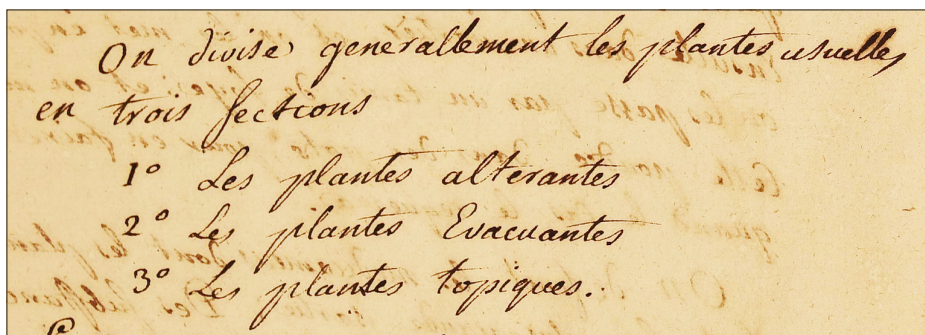 On divise generallement les plantes usuelles
en trois sections
1° Les plantes alterantes
2° Les plantes Evacuantes
3° Les plantes topiques.